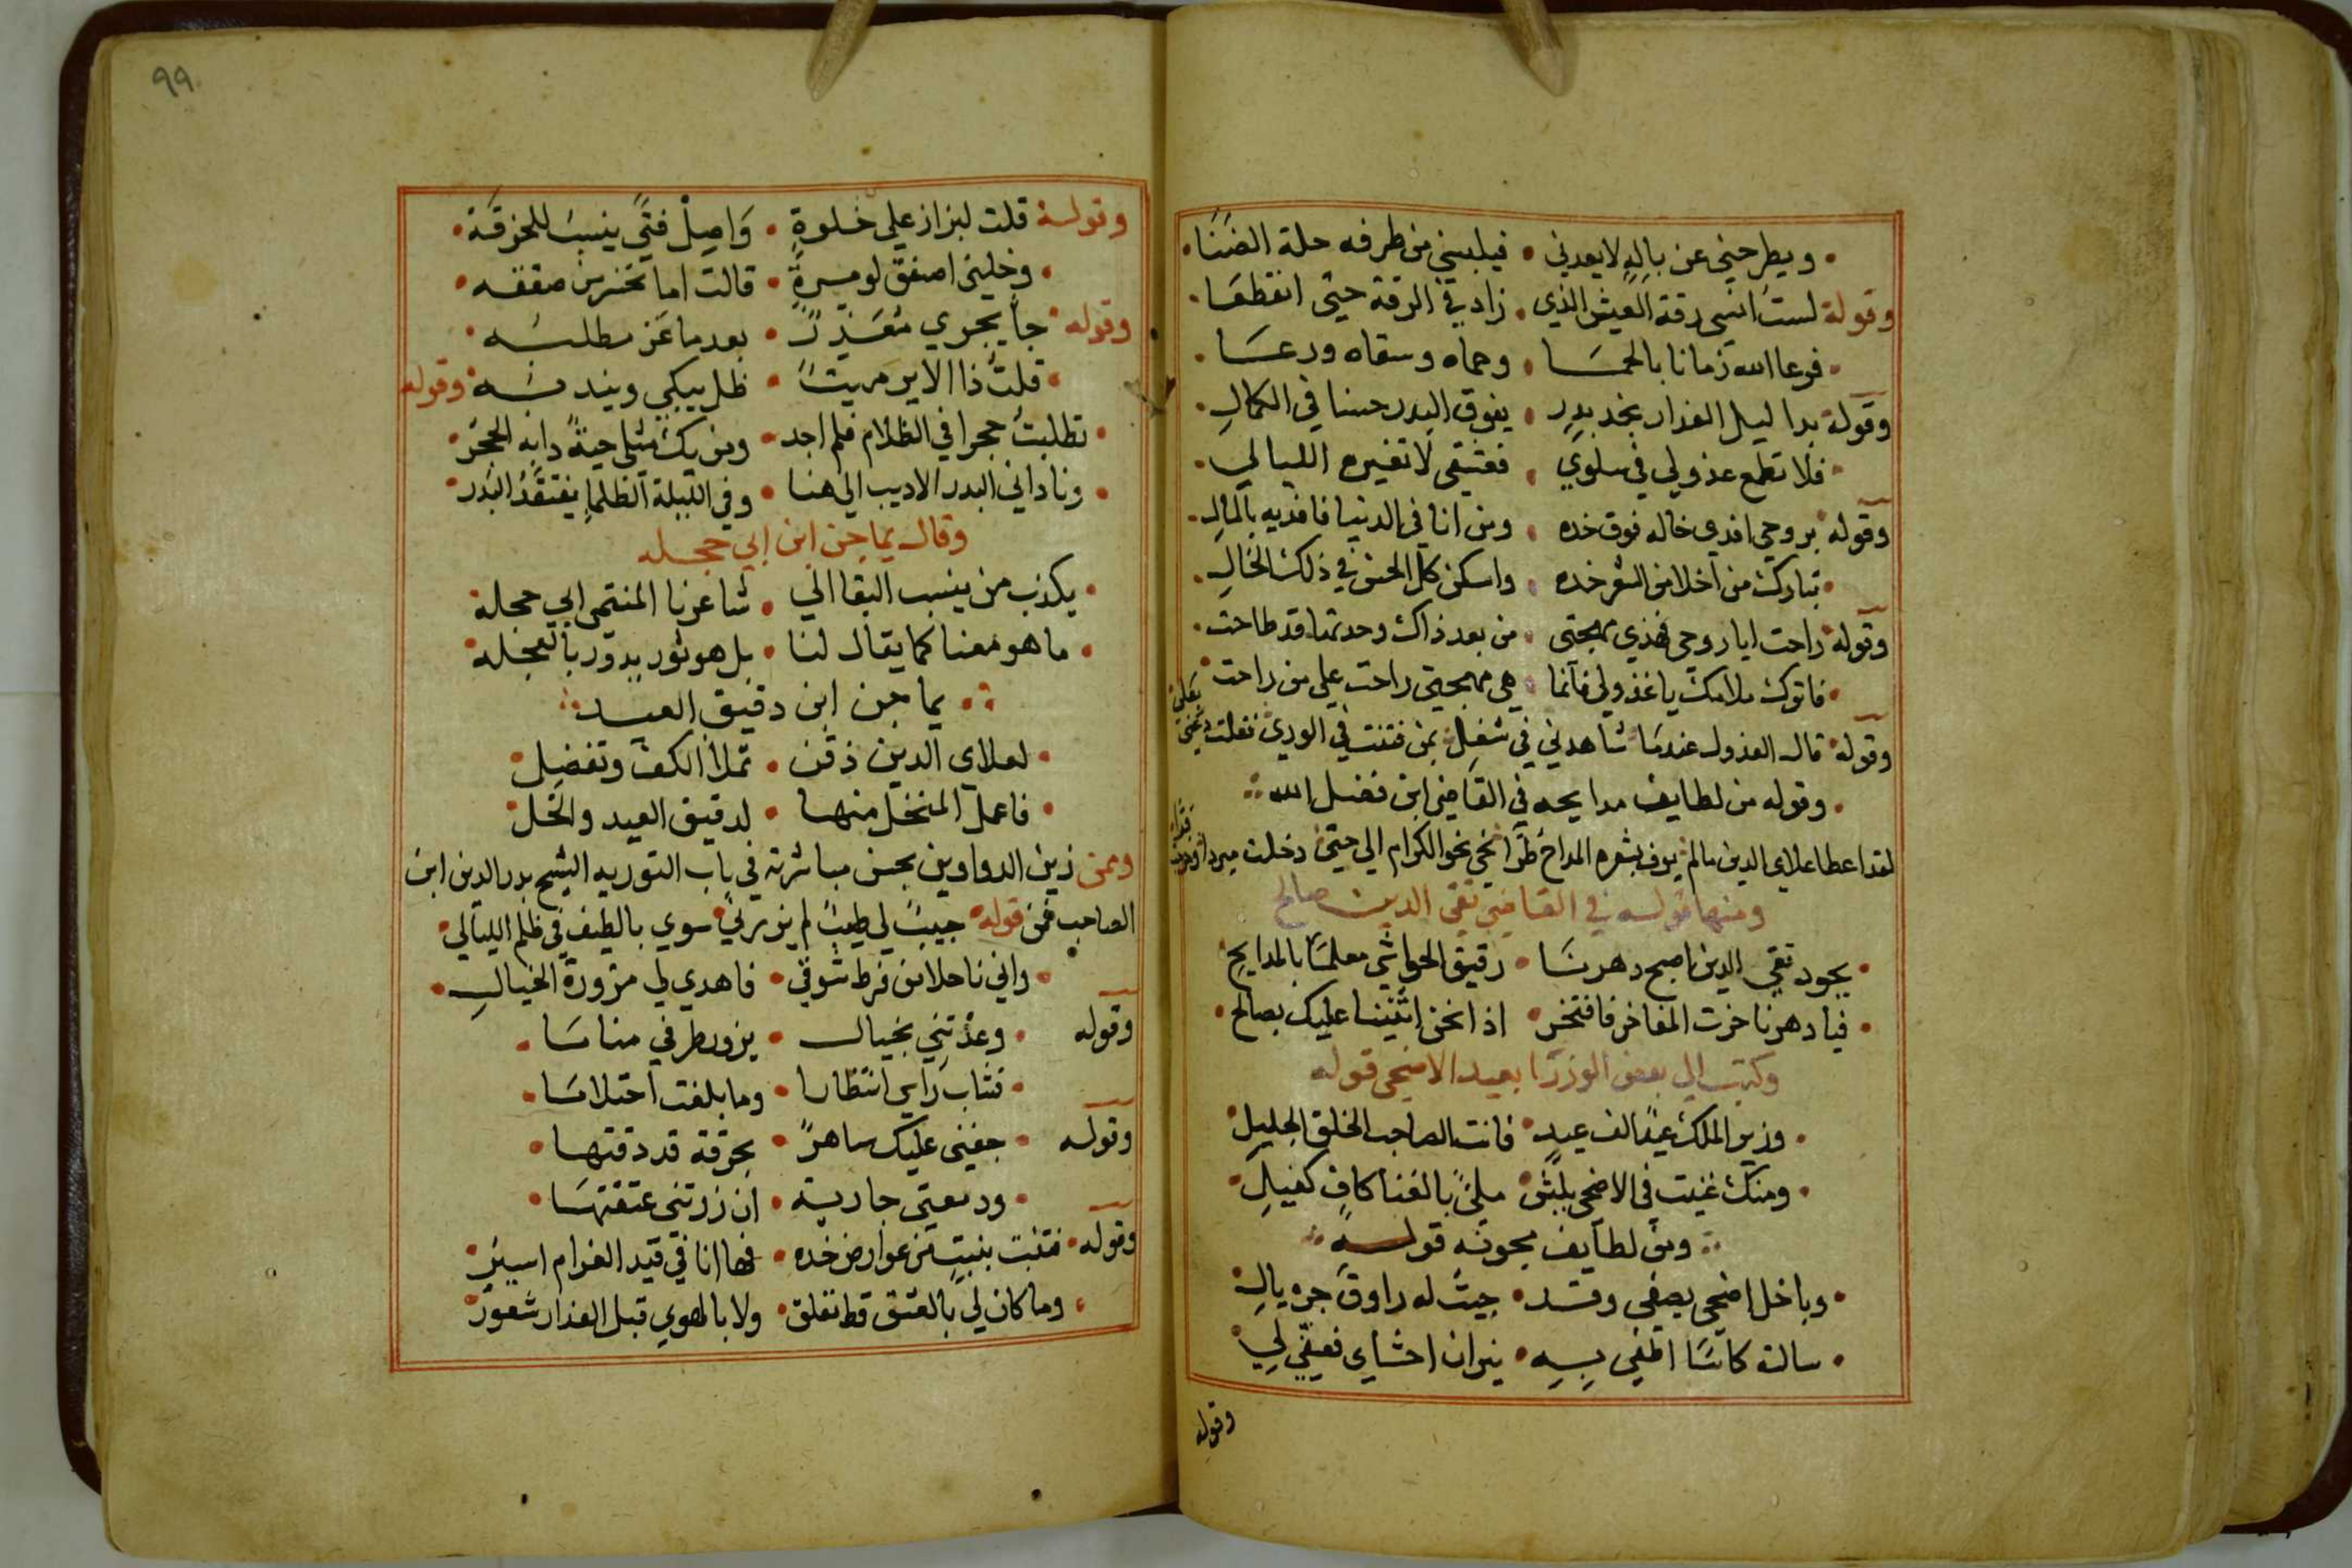 ويطرحني عن باله لا يعدني • فيلبسني من طرفه حلة الضنا
وقوله لست انسي رقة العيش الذي • زاد في الرقة حتي انقطعا
فرعا الله زمانا بالحمسا • وحماه وسقاه ورعسا
وقوله بدا ليل العذار بخد بدر • يفوق البدر حسنا في الكمال
فلا تطمع عذولي في سلوي • فعشقي لا تغيره الليالي
وقوله بروحي افدي خاله فوق خده • ومن انا في الدنيا فافديه بالمال
تبارك من اخلا من الشعر خده • واسكن كل الحسن في ذلك الخال
وقوله راحت ايا روحي فهذي مهجتي • من بعد ذاك وحدتها قد طاحت
فاترك ملامك يا عذولي فآنما • هي مهجتي راحت علي من راحت
وقوله قال العذول عندما شاهدني في شغل • بمن فتنت في الوري فقلت
وقوله من لطايف مدايحه في القاضي ابن فضل الله
لقد اعطا علاي الدين مالم يوف بشعره المداح طرا نحي نحو الكرام الي حتي دخلت
ومنها قوله في القاضي تقي الدين صالح
بجود تقي الدين اصبح دهرنا • رقيق الحواشي معلما بالمدايح
فيا دهرنا حزت المفاخر فافتخر • اذا نحن اثنينا عليك بصالح
وكتب الي بعض الوزرا بعيد الاضحي قوله
وزير الملك الف عيد • فانت الصاحب الخلق الجليل
ومنك غنيت في الاضحي بلبش • ملئ بالغنا كاف كفيل
ومن لطايف مجونه قوله
وباخل اضحي يصفي وقد • جيت له راوق جريال
سالته كاسا اطفي به • نيران احشاي فصفي لي
وقوله
٩٩
وقوله قلت لبزاز علي خلوة • واصل فتي ينسب للخرقة
وخليني اصفق لو مرة • قالت اما تخسر من صفقه
وقوله جا يجري معذرً • بعد ما عز مطلبه
قلت ذا الاير ميتا • ظل يبكي ويندبه وقوله
تطلبت حجرا في الظلام فلم اجد • ومن يك مثلي حية دابه الحجر
وناداني البدر الاديب الي هنا • وفي الليلة الظلماء يفتقد البدر
وقال يماجن ابن ابي حجله
يكذب من ينسب البقا الي • شاعرنا المنتمي الي حجلة
ما هو معنا كما يقال لنا • بل هو ثور يدور بالعجله
يماجن ابن دقيق العيد
لعلاي الدين ذقن • تملأ الكف وتفضل
فاعمل المنخل منها • لدقيق العيد وانخل
وممن زين الدواوين بحسن مباشرته في باب التوريه الشيخ بدر الدين ابن
الصاحب فمن قوله حبيب لي طبيب لم يزرني سوي بالطيف في ظلم الليالي
راني ناحلا من فرط شوقي • فاهدي لي مزورة الخيال
وقوله وعدتني بخيال • يزور طرفي مناما
فشاب راسي انتظارا • وما بلغت احتلاما
وقوله جفني عليك ساهرً • بحرقة قد ذقتها
ودمعتي جارية • ان زرتني عتقتها
وقوله فتنت بنبت من عوارض خده • فها انا في قيد الغرام اسير
وما كان لي بالعشق قط تعلق • ولا بالهوي قبل العذار شعور